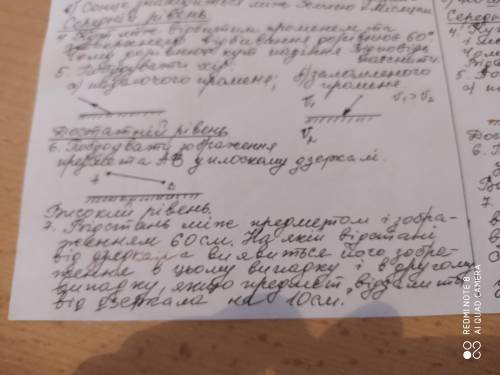 Сонце знаходиться між Землею і Місяцем
Середній рівень
4. Кут між відбитим променем та
дорівнює 60°
Чому дорівнює кут падіння? Відповідь
пояснити.
5. Побудувати хід
а) падаючого променя;
б) заломленого
променя
V₁
V₁ > V₂
V₂
Достатній рівень
6. Побудувати зображення
предмета АВ у плоскому дзеркалі.
А
В
Високий рівень
7. Відстань між предметом і зобра-
женням 60см. На якій відстані
від дзеркала виявиться його зобра-
ження в цьому випадку і в другому
випадку, якщо предмет віддалити
від дзеркала на 10см.
REDMI NOTE 8
AI QUAD CAMERA